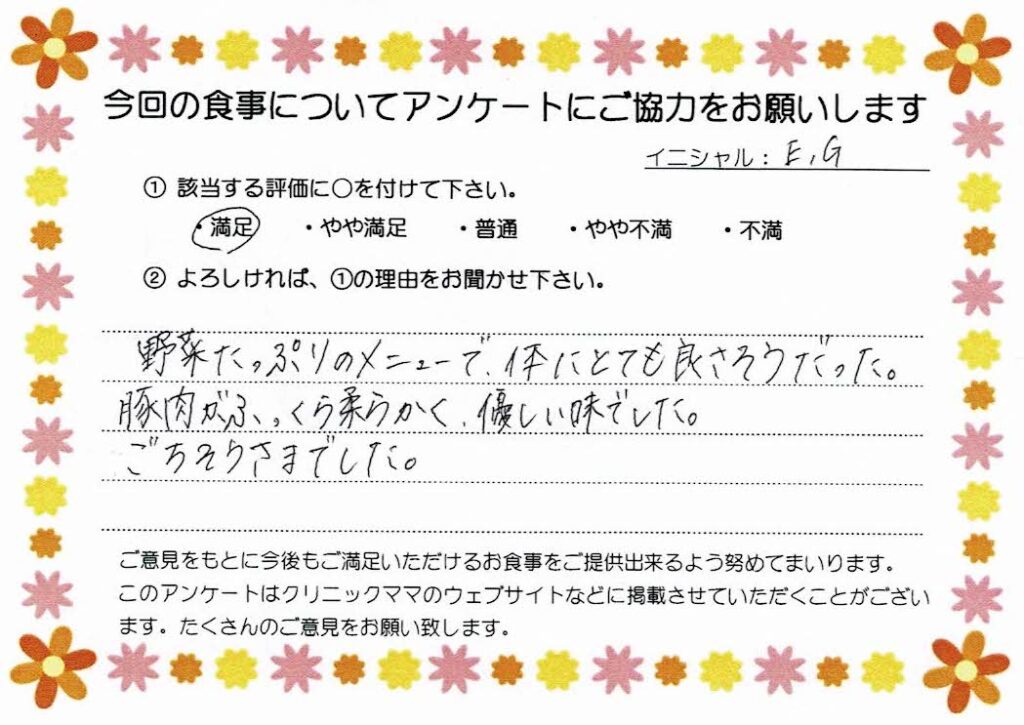 今回の食事についてアンケートにご協力をお願いします
イニシャル： E,G
① 該当する評価に○を付けて下さい。
・満足 ・やや満足 ・普通 ・やや不満 ・不満
② よろしければ、①の理由をお聞かせ下さい。
野菜たっぷりのメニューで、体にとても良さそうだった。
豚肉がふっくら柔らかく、優しい味でした。
ごちそうさまでした。
ご意見をもとに今後もご満足いただけるお食事をご提供出来るよう努めてまいります。
このアンケートはクリニックママのウェブサイトなどに掲載させていただくことがござい
ます。たくさんのご意見をお願い致します。